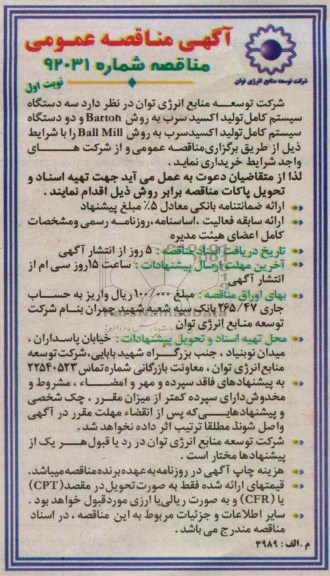 آگهی مناقصه عمومی
مناقصه شماره ۹۲۰۳۱
نوبت اول
شرکت توسعه منابع انرژی توان
شرکت توسعـــه منابع انرژی توان در نظر دارد سه دستگاه
سیستم کامل تولید اکسید سرب به روش Barton و دو دستگاه
سیستم کامل تولید اکسید سرب به روش Ball Mill را با شرایط
ذیل از طریق برگزاری مناقصه عمومی و از شرکت هــــای
واجد شرایط خریداری نماید .
لذا از متقاضیان دعوت به عمل می آید جهت تهیه اسناد و
تحویل پاکات مناقصه برابر روش ذیل اقدام نمایند .
ارائه ضمانتنامه بانکی معادل ۵٪ مبلغ پیشنهاد
ارائه سابقه فعالیت ،اساسنامه،روزنامـه رسمی ومشخصات
کامل اعضای هیئت مدیره
تاریخ دریافت اسناد مناقصه : ۵ روز از انتشار آگهی
آخرین مهلت ارسال پیشنهادات : ساعت ۱۵ روز سی ام از
انتشار آگهی
بهای اوراق مناقصه : مبلغ ۱۰۰/۰۰۰ ریال واریز به حساب
جاری ۲۶۵/۴۷ بانک سپه شعبه شهید چمران بنام شرکت
توسعه منابع انرژی توان
محل تهیه اسناد و تحویل پیشنهادات : خیابان پاسداران ،
میدان نوبنیاد ، جنب بزرگـراه شهید بابایی،شرکت توسعه
منابع انرژی توان ، معاونت بازرگانی شماره تماس ۲۲۵۴۰۵۲۲
به پیشنهادهای فاقد سپرده و مهر و امضـــاء ، مشروط و
مخدوش دارای سپرده کمتر از میزان مقرر . چک شخصی
و پیشنهادهایـــی که پس از انقضاء مهلت مقرر در آگهی
واصل شوند مطلقا ترتیب اثر داده نخواهد شد .
شرکت توسعه منابع انرژی توان در رد یا قبول هر یک از
پیشنهادها مختار است .
هزینه چاپ آگهی در روزنامه به عهده برنده مناقصه میباشد.
قیمتهای ارائه شده فقط به صورت تحویل در مقصد (CPT)
یا (CFR) و به صورت ریالی یا ارزی مورد قبول خواهد بود .
سایر اطلاعات و جزئیات مربوط به این مناقصه ، در اسناد
مناقصه مندرج می باشد .
م .الف : ۳۹۸۹